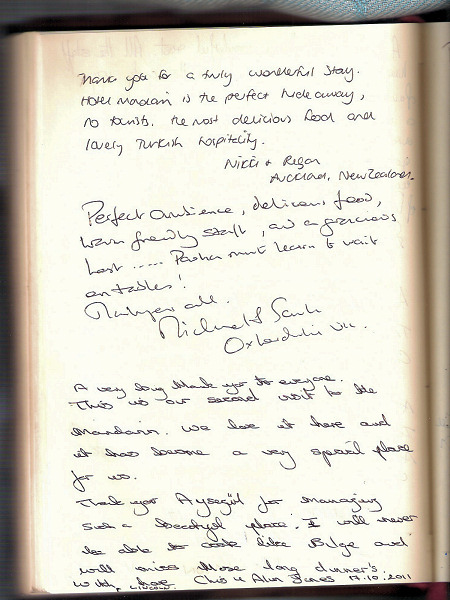 Thank you for a truly wonderful stay.
Hotel mandarin is the perfect hide away,
no tourists, the most delicious food and
lovely Turkish hospitality.
Nikki &
Auckland, New Zealand.
Perfect ambience, delicious food,
warm friendly staff, and a gracious
host ..... must learn to wait
on tables!
Thank you all.
Michael
Oxfordshire UK.
A very long thank you to everyone.
This is our second visit to the
Mandarin. We love it here and
it has become a very special place
for us.
Thank you Ayşegül for managing
such a beautiful place. I will never
be able to cook like Bilge and
will miss those long dinner's
with, LINCOLN. Chris & Alun Jones 17.10.2011